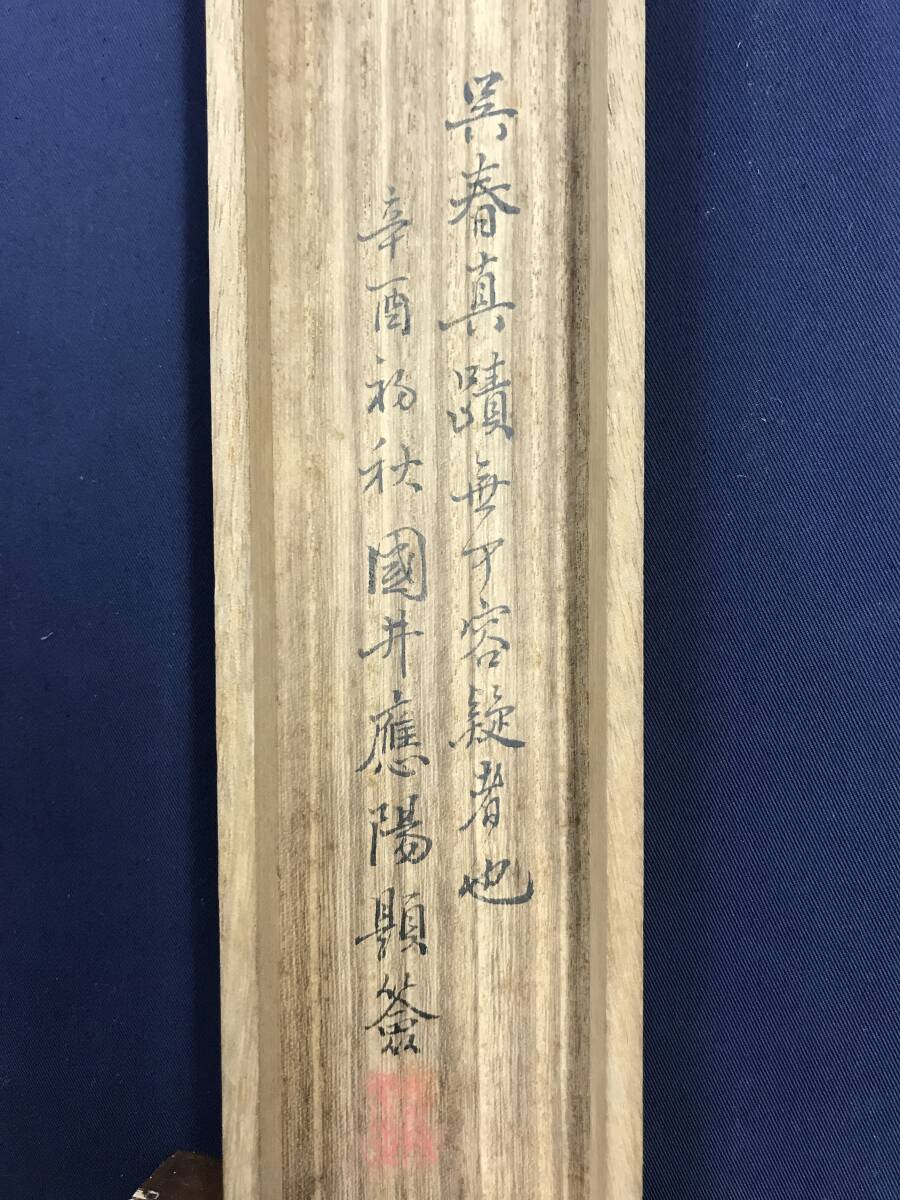 呉春真蹟無可容疑者也
辛酉初秋國井應陽題簽